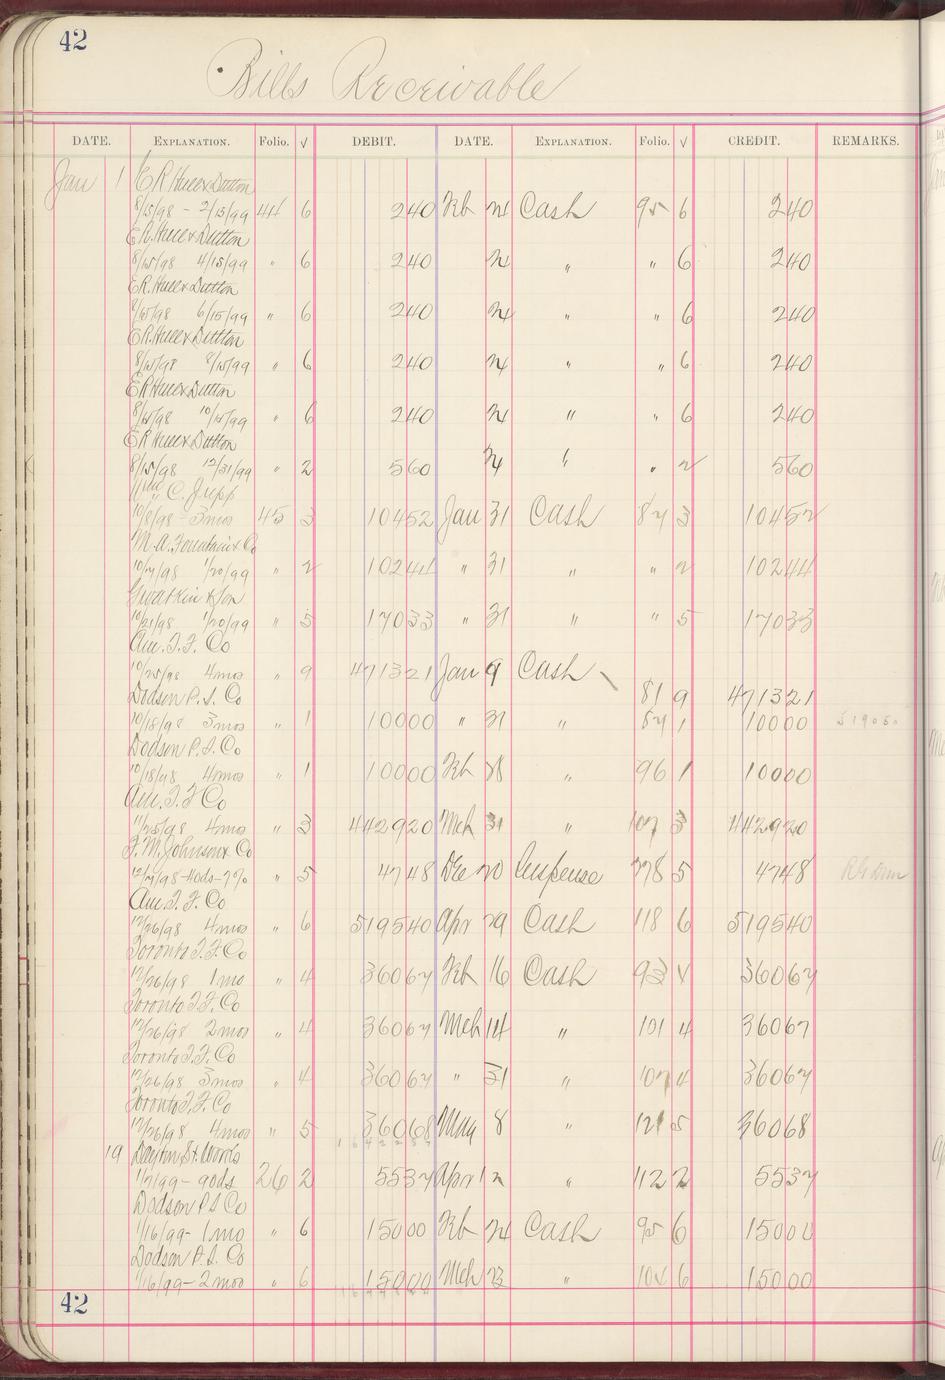 42
Bills Receivable
DATE. EXPLANATION. Folio. √ DEBIT. DATE. EXPLANATION. Folio. √ CREDIT. REMARKS.
Jan 1 E R Hull & Dutton
8/15/98 - 2/15/99 44 6 240 Feb 24 Cash 95 6 240
E. R. Hull & Dutton
8/15/98 4/15/99 " 6 240 24 " " 6 240
E R. Hull & Dutton
8/15/98 6/15/99 " 6 240 24 " " 6 240
E R. Hull & Dutton
8/15/98 8/15/99 " 6 240 24 " " 6 240
E R Hull & Dutton
8/15/98 10/15/99 " 6 240 24 " " 6 240
E R Hull & Dutton
8/15/98 12/31/99 " 2 560 24 " " 2 560
Wm C. Jupp
10/8/98 - 3mos 45 3 104 52 Jan 31 Cash 87 3 104 52
M. A. Fountain & Co
10/7/98 1/20/99 " 2 102 44 " 31 " " 2 102 44
Gwatkin & Son
10/21/98 1/20/99 " 5 170 33 " 31 " " 5 170 33
Am. T. F. Co
10/25/98 4mos " 9 4713 21 Jan 9 Cash
81 9 4713 21
Dodson P. S. Co
10/18/98 3mos " 1 100 00 " 31 " 87 1 100 00 5190 50
Dodson P. S. Co
10/18/98 4mos " 1 100 00 Feb 28 " 96 1 100 00
Am. T. F Co
11/25/98 4mo " 3 4429 20 Mch 31 " 107 3 4429 20
F. M. Johnson & Co
12/7/98 - 40ds - 7% " 5 47 48 Dec 20 Suspense 278 5 47 48
Am T. F. Co
12/26/98 4mos " 6 5195 40 Apr 29 Cash 118 6 5195 40
Toronto T. F. Co
12/26/98 1mo " 4 360 67 Feb 16 Cash 93 4 360 67
Toronto T. F. Co
12/26/98 2mos " 4 360 67 Mch 14 " 101 4 360 67
Toronto T. F. Co
12/26/98 3mos " 4 360 67 " 31 " 107 4 360 67
Toronto T. F. Co
12/26/98 4mos " 5 360 68 May 8 " 121 5 360 68
19 Dayton St. Works
1/7/99 - 90ds 26 2 55 37 Apr 12 " 112 2 55 37
Dodson P S Co
1/16/99 - 1mo " 6 150 00 Feb 24 Cash 95 6 150 00
Dodson P. S. Co
1/16/99 - 2mos " 6 150 00 Mch 23 " 104 6 150 00
42